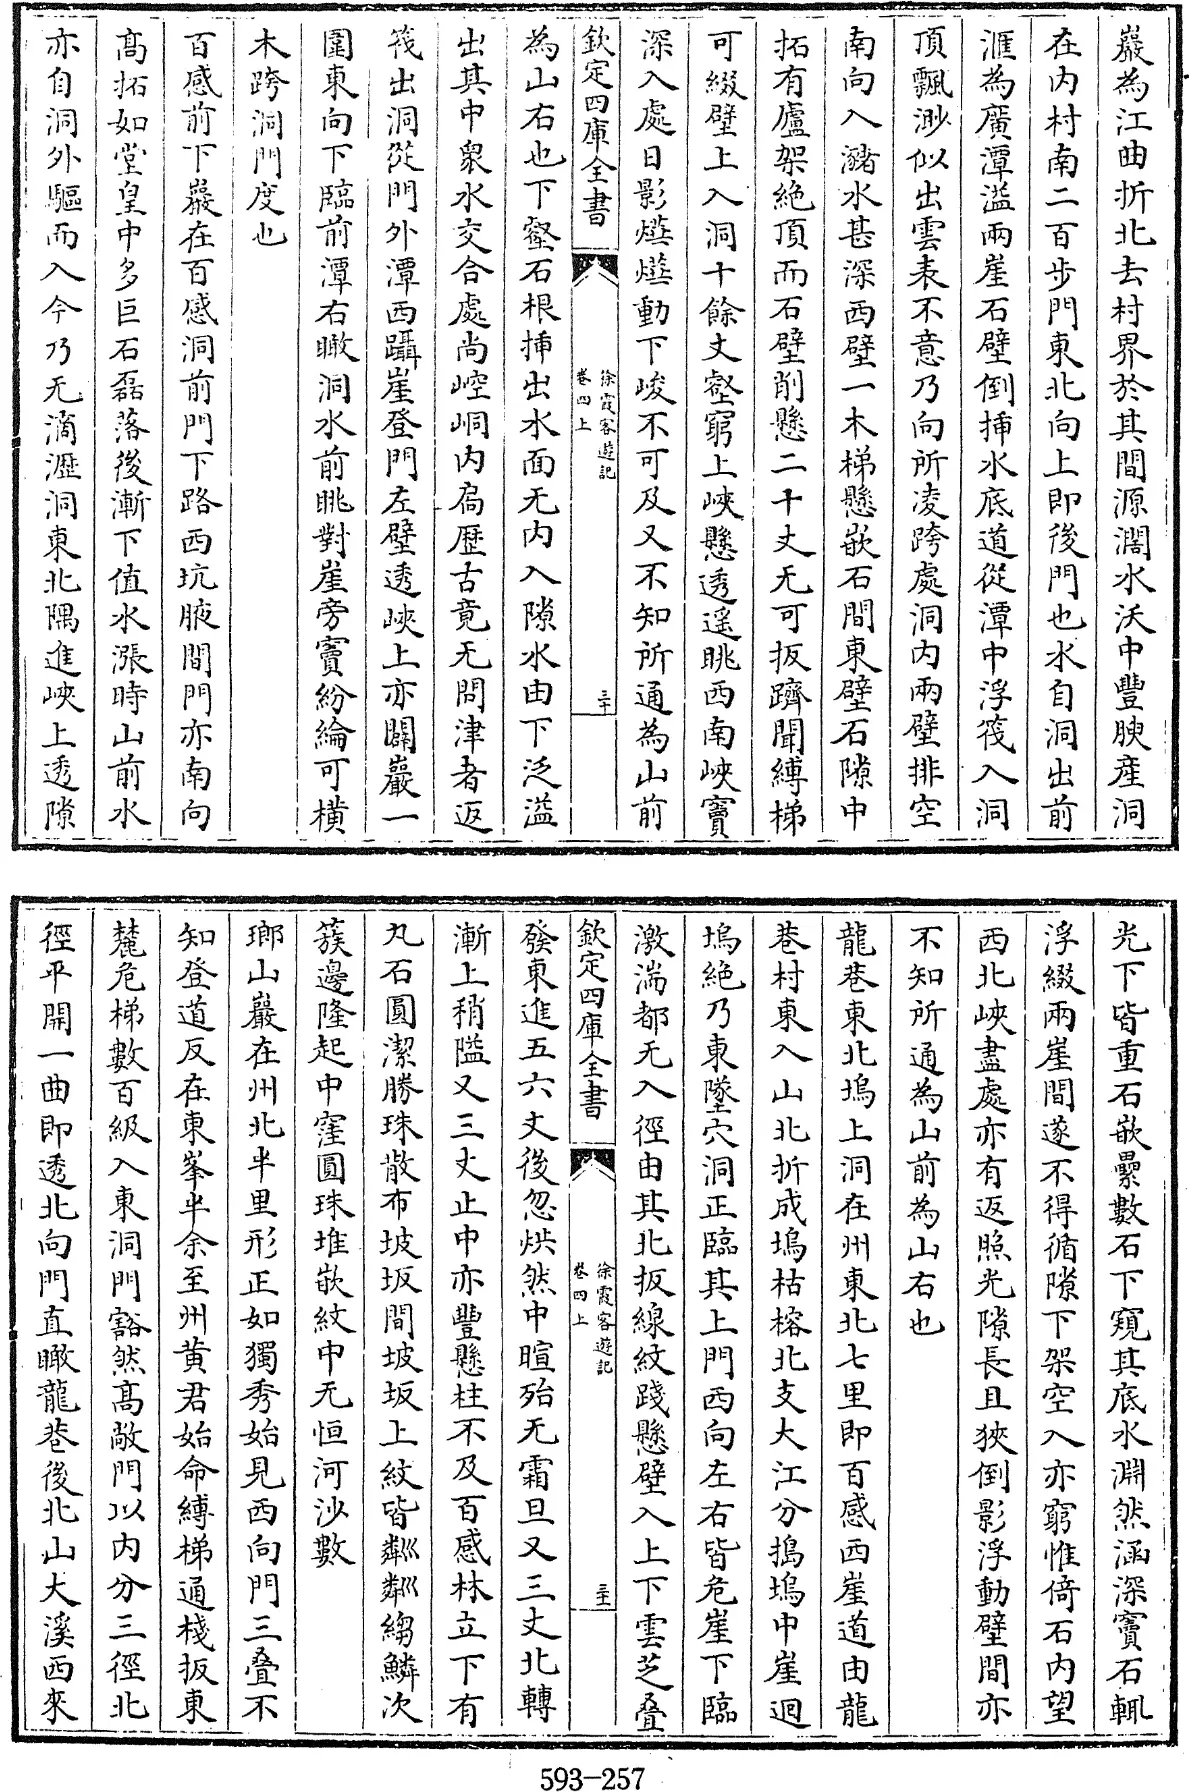 巖為江曲折北去村界於其間源濶水沃中豐腴産洞
在内村南二百步門東北向上即後門也水自洞出前
滙為廣潭溢兩崖石壁倒揷水底道從潭中浮筏入洞
頂飄渺似出雲表不意乃向所凌跨處洞内兩壁排空
南向入瀦水甚深西壁一木梯懸嵌石間東壁石隙中
拓有廬架絶頂而石壁削懸二十丈无可扳躋聞縛梯
可綴壁上入洞十餘丈壑窮上峽懸透遥眺西南峽竇
深入處日影熒熒動下峻不可及又不知所通為山前
欽定四庫全書
徐霞客遊記
卷四上
三十
為山右也下壑石根揷出水面无内入隙水由下泛溢
出其中衆水交合處尚崆峒内扃歷古竟无問津者返
筏出洞從門外潭西躡崖登門左壁透峽上亦闢巖一
圍東向下臨前潭右瞰洞水前眺對崖旁竇紛綸可橫
木跨洞門度也
百感前下巖在百感洞前門下路西坑腋間門亦南向
髙拓如堂皇中多巨石磊落後漸下值水漲時山前水
亦自洞外驅而入今乃无滴瀝洞東北隅進峽上透隙
光下皆重石嵌纍數石下窺其底水淵然涵深竇石輒
浮綴兩崖間遂不得循隙下架空入亦窮惟倚石内望
西北峽盡處亦有返照光隙長且狹倒影浮動壁間亦
不知所通為山前為山右也
龍巷東北塢上洞在州東北七里即百感西崖道由龍
巷村東入山北折成塢枯榕北支大江分搗塢中崖迴
塢絶乃東墜穴洞正臨其上門西向左右皆危崖下臨
激湍都无入徑由其北扳線紋踐懸壁入上下雲芝叠
欽定四庫全書
徐霞客遊記
卷四上
三十一
發東進五六丈後忽烘然中暄殆无霜旦又三丈北轉
漸上稍隘又三丈止中亦豐懸柱不及百感林立下有
丸石圓潔勝珠散布坡坂間坡坂上紋皆粼巛粼巛縐鱗次
簇邊隆起中窪圓珠堆嵌紋中无恒河沙數
瑯山巖在州北半里形正如獨秀始見西向門三叠不
知登道反在東峯半余至州黄君始命縛梯通棧扳東
麓危梯數百級入東洞門豁然髙敞門以内分三徑北
徑平開一曲即透北向門直瞰龍巷後北山大溪西來
593-257